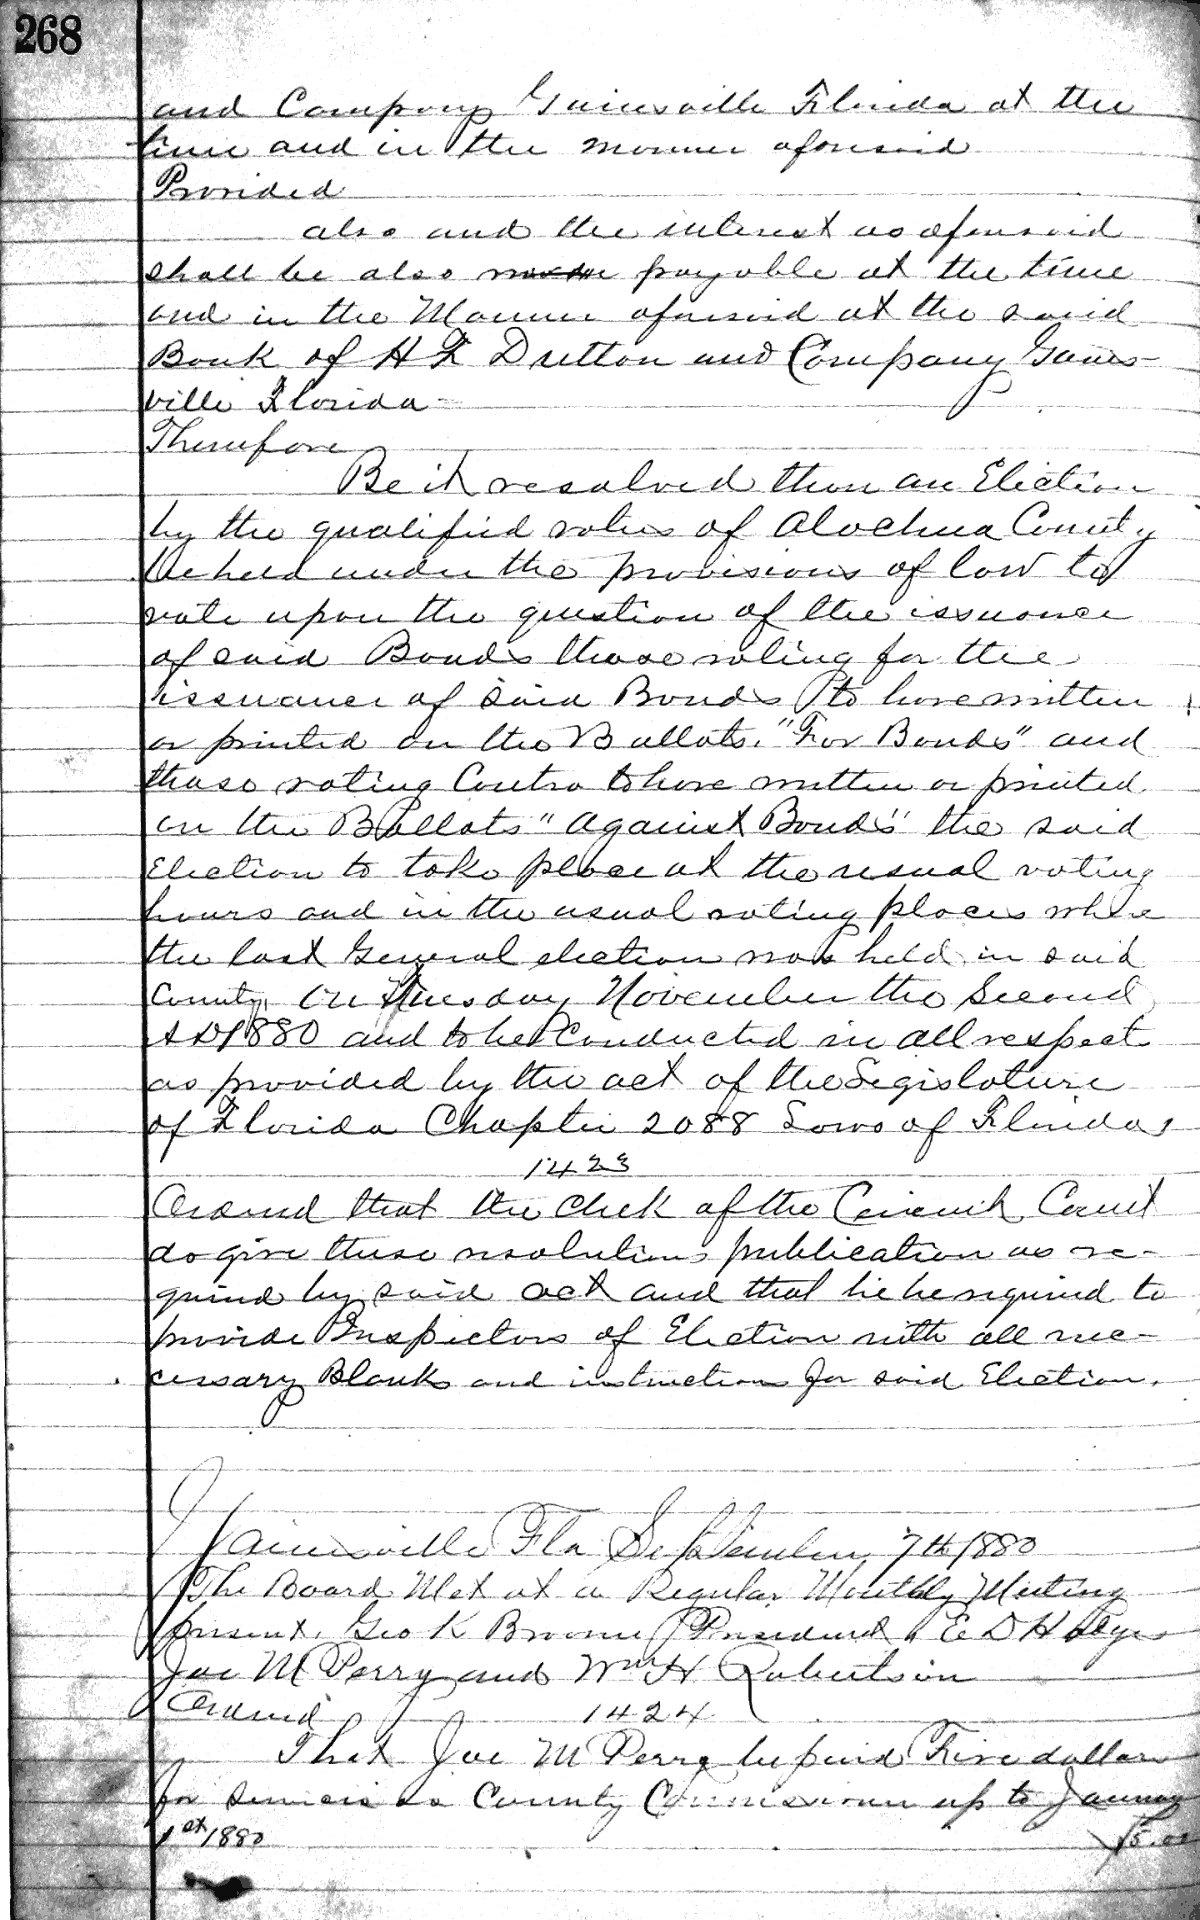 268
and Company Gainesville Florida at the
time and in the manner aforesaid
Provided
also and the interest as aforesaid
shall be also payable at the time
and in the Manner aforesaid at the said
Bank of H F Dutton and Company Gaines-
ville Florida-
Therefore
Be it resolved then an Election
by the qualified voters of Alachua County
be held under the provisions of law to
vote upon the question of the issuance
of said Bonds those voting for the
issuance of said Bonds to have written
or printed on the Ballots. "For Bonds" and
those voting Contra to have written or printed
on the Ballots "Against Bonds" the said
Election to take place at the usual voting
hours and in the usual voting places where
the last General election was held in said
County, On Tuesday November the Second
AD 1880 and to be Conducted in all respect
as provided by the act of the Legislature
of Florida Chapter 2088 Laws of Florida,
1423
Ordered that the Clerk of the Circuit Court
do give these resolutions publication as re-
quired by said act and that he be required to
provide Inspectors of Election with all nec-
cessary Blanks and instructions for said Election.
Gainesville Fla September 7th 1880
The Board Met at a Regular Monthly Meeting
present. Geo K Broome President, E D H
Joe M Perry and Wm H Robertson
Ordered 1424
That Joe M Perry be paid Five dollars
for services as County Commissioner up to January
1st 1880 $5.00